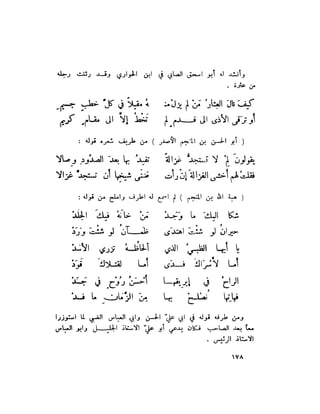 وأنشد له أبو اسحق الصابي في ابن الحواري وقد رثلت رجله
من عثرة .
كيف نال العثار من لم يزل منـ ـه مقيلاً في كل خطب جسيم
أو ترقى الأذى الى قدم لم تخط إلا الى مقام كريم
( أبو الحسن بن المنجم الأصغر ) من طريف شعره قوله :
يقولون لم لا تستجد غزالة تفيد بها بعد الصدود وصالا
فقلت لهم أخشى الغزالة إن رأت فتى شيخها أن تستجد غزالا
( هبة الله بن المنجم ) لم اسمع له اظرف واملح من قوله :
شكا اليك ما وجد من خانه فيك الجلد
حيران لو شئت اهتدى ظمآن لو شئت ورد
يا أيها الظبي الذي ألحاظه تزري الأسد
أما لأسراك فدى أما لقتلاك قود
الراح في إبريقها أحسن روح في جسد
فهاتها نصلح بها من الزمان ما فسد
ومن طرفه قوله في ابي علي الحسن وابي العباس الضبي لما استوزرا
معاً بعد الصاحب فكان يدعي أبو علي الاستاذ الجليل وابو العباس
الاستاذ الرئيس .
١٧٨